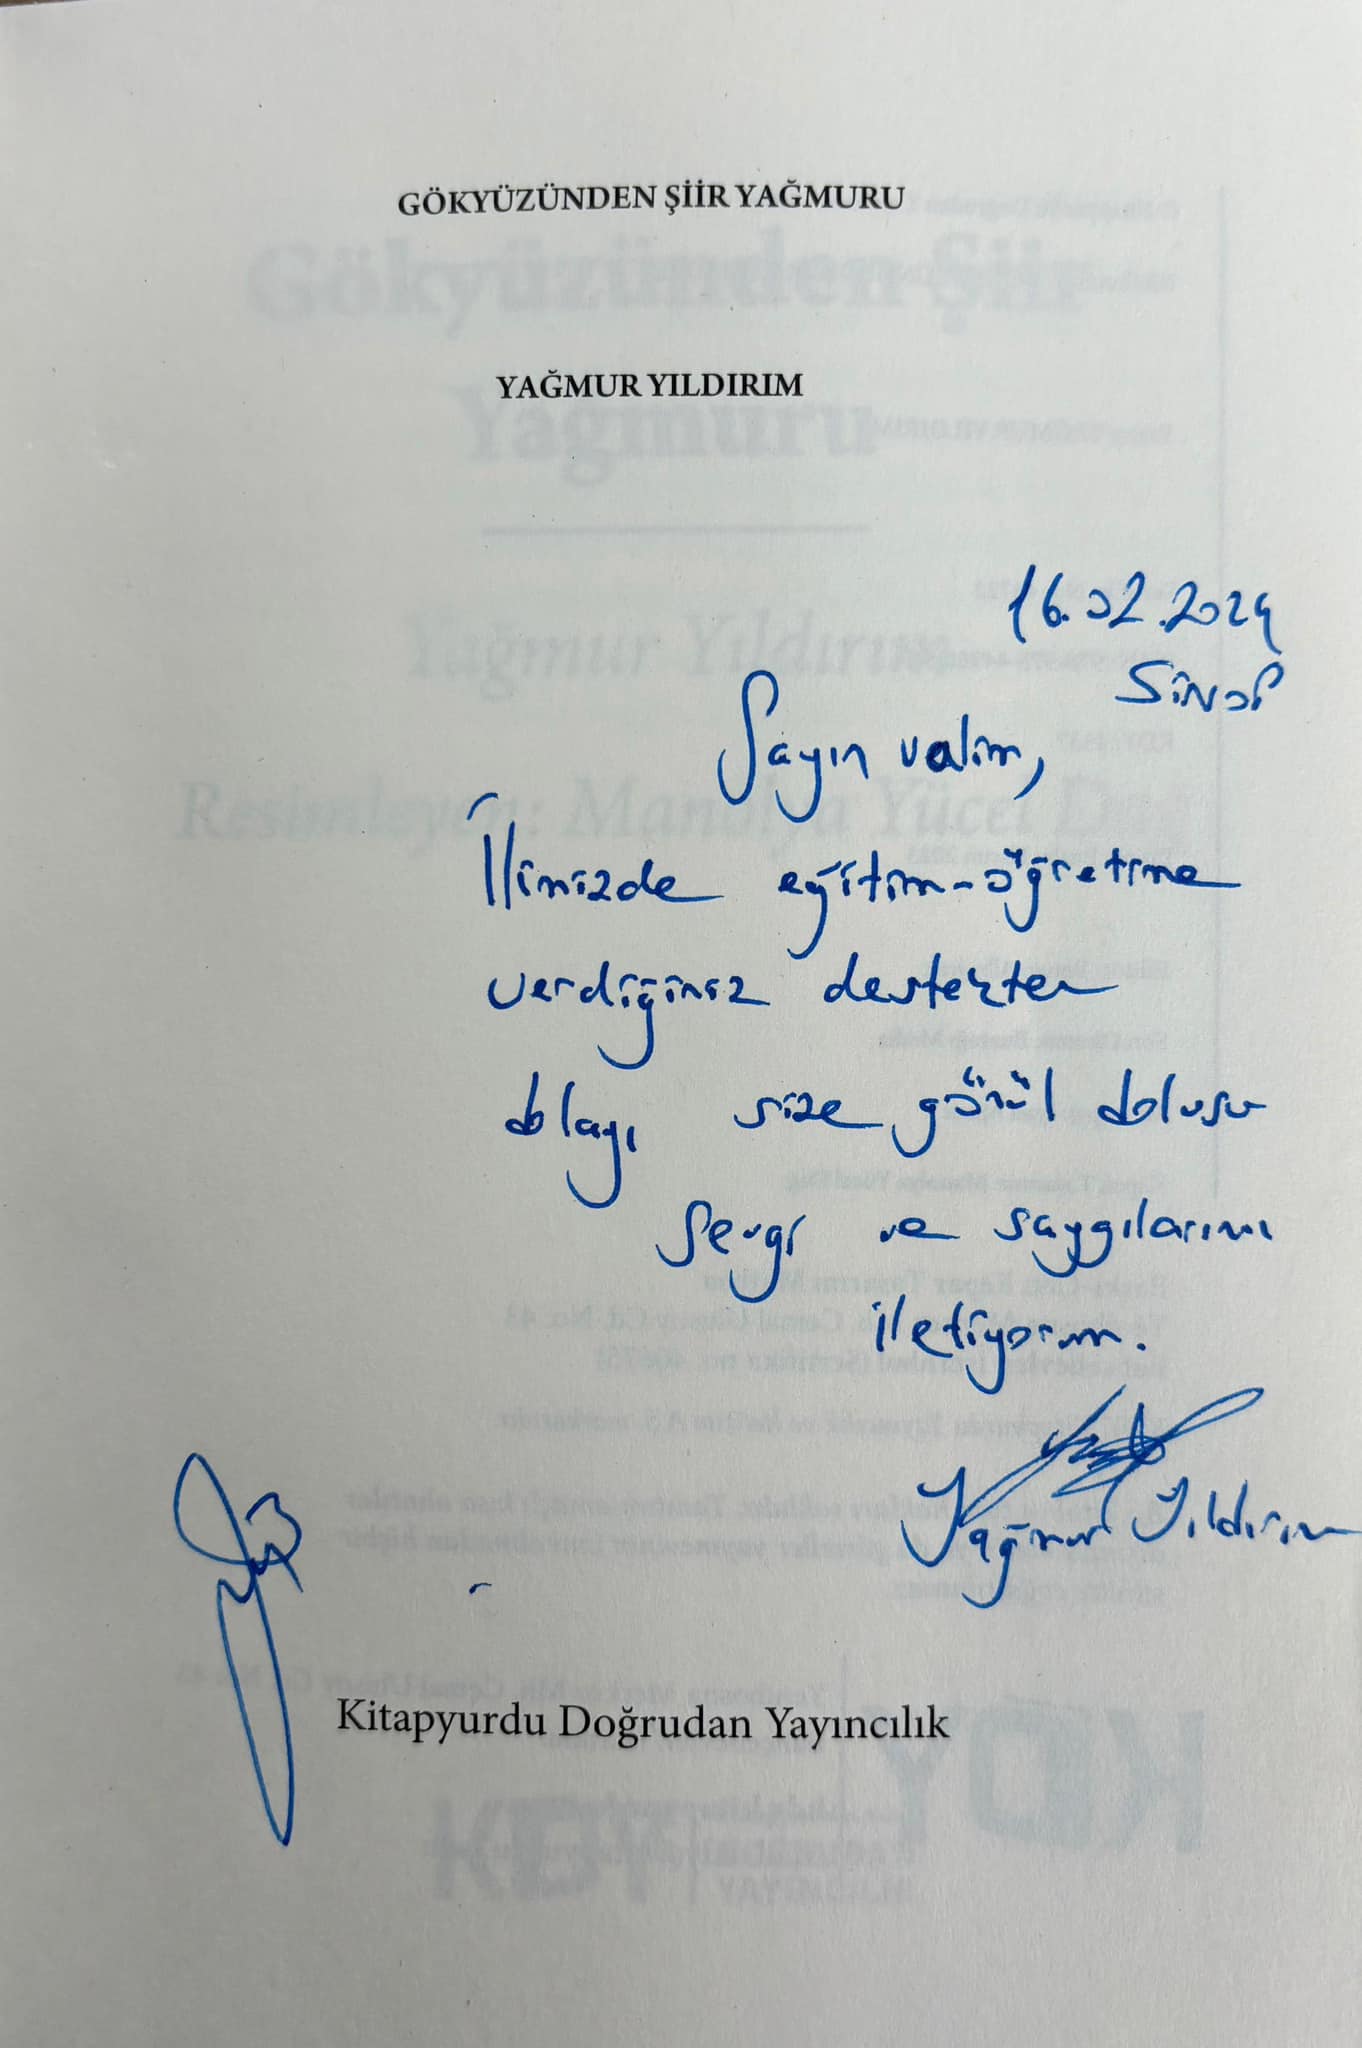 GÖKYÜZÜNDEN ŞİİR YAĞMURU
YAĞMUR YILDIRIM
16.02.2024
SİNOP
Sayın valim,
İlimizde eğitim-öğretime
verdiğiniz destekten
dolayı size gönül dolusu
sevgi ve saygılarımı
iletiyorum.
Yağmur Yıldırım
Kitapyurdu Doğrudan Yayıncılık